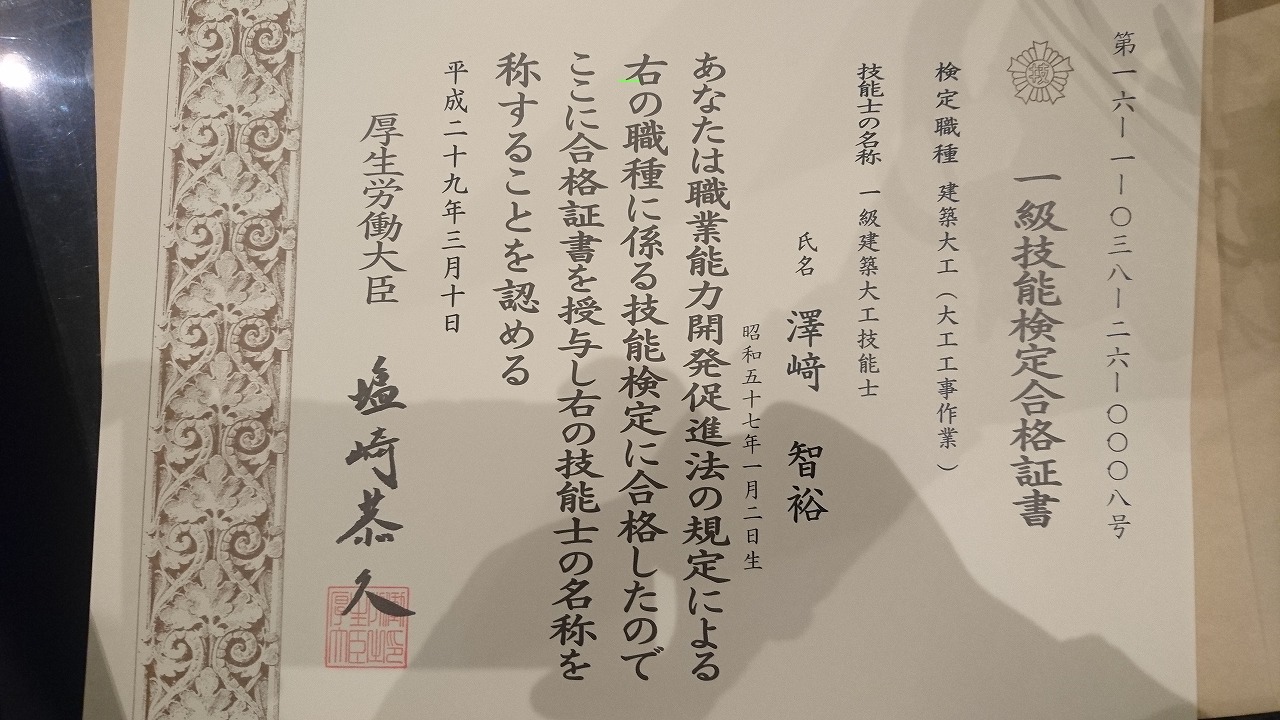 第一六―一―〇三八―二六―〇〇〇八号
一級技能検定合格証書
検定職種 建築大工(大工工事作業)
技能士の名称 一級建築大工技能士
氏名 澤﨑 智裕
昭和五十七年一月二日生
あなたは職業能力開発促進法の規定による
右の職種に係る技能検定に合格したので
ここに合格証書を授与し右の技能士の名称を
称することを認める
平成二十九年三月十日
厚生労働大臣 塩崎恭久